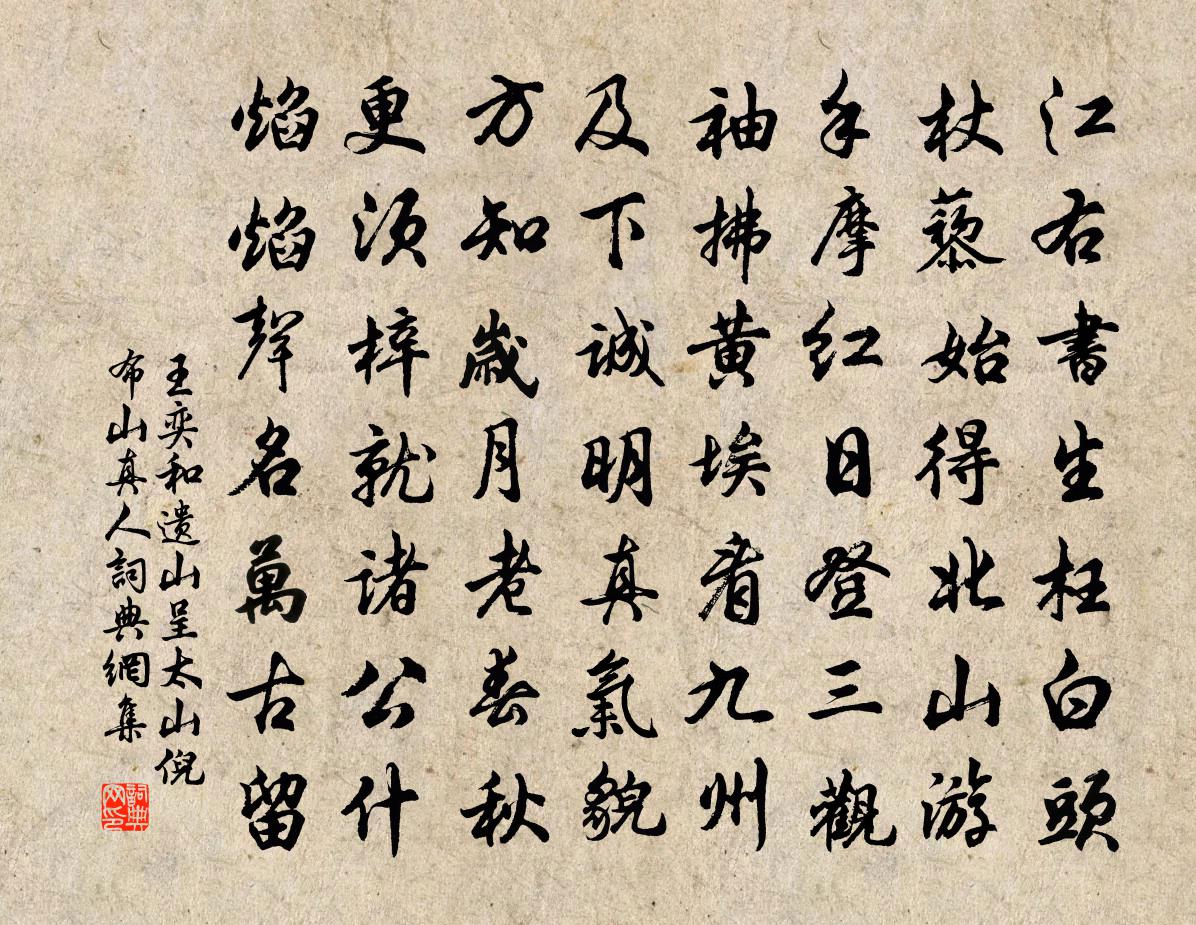 江右書生枉白頭
杖藜始得北山游
手摩紅日登三觀
袖拂黃埃看九州
及下誠明真氣貌
方知歲月老春秋
更須梓就諸公什
焰焰聲名萬古留
王奕和遺山呈太山倪
布山真人詞典網集
詞典
网印